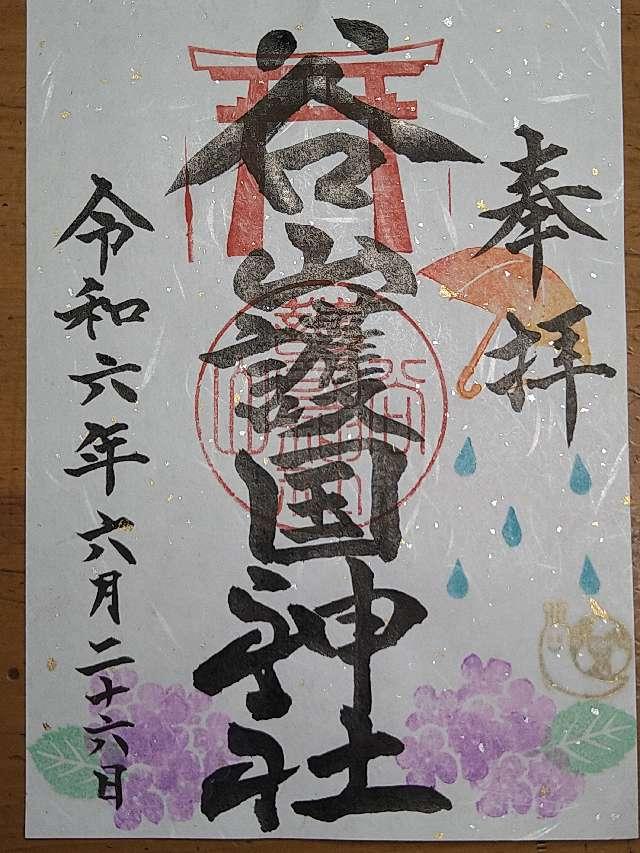 奉拝
谷山護国神社
令和六年六月二十六日